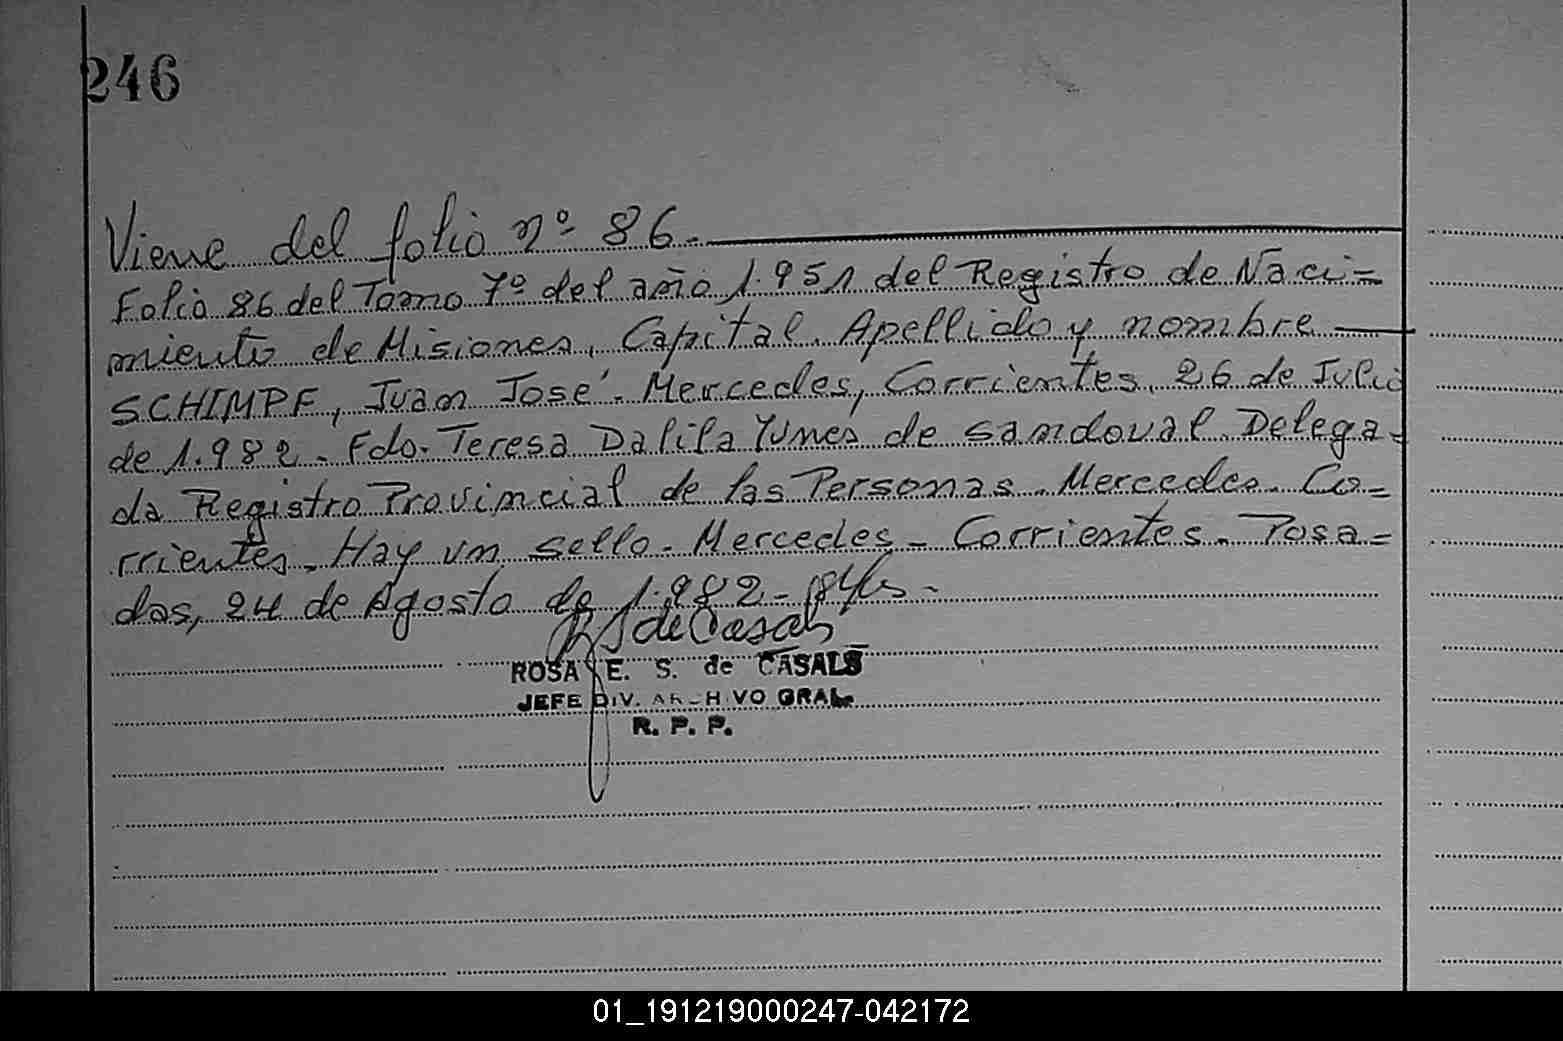 246
Viene del folio nº 86.
Folio 86 del Tomo 7º del año 1.951 del Registro de Naci=
miento de Misiones, Capital. Apellido y nombre
SCHIMPF, Juan José. Mercedes, Corrientes, 26 de Julio
de 1.982. Fdo. Teresa Dalila Yunes de Sandoval. Delega=
da Registro Provincial de las Personas. Mercedes. Co=
rrientes. Hay un sello. Mercedes - Corrientes. Posa=
das, 24 de Agosto de 1.982-
de Casals
ROSA E. S. de CASALS
JEFE DIV. ARCHIVO GRAL.
R. P. P.
01_191219000247-042172